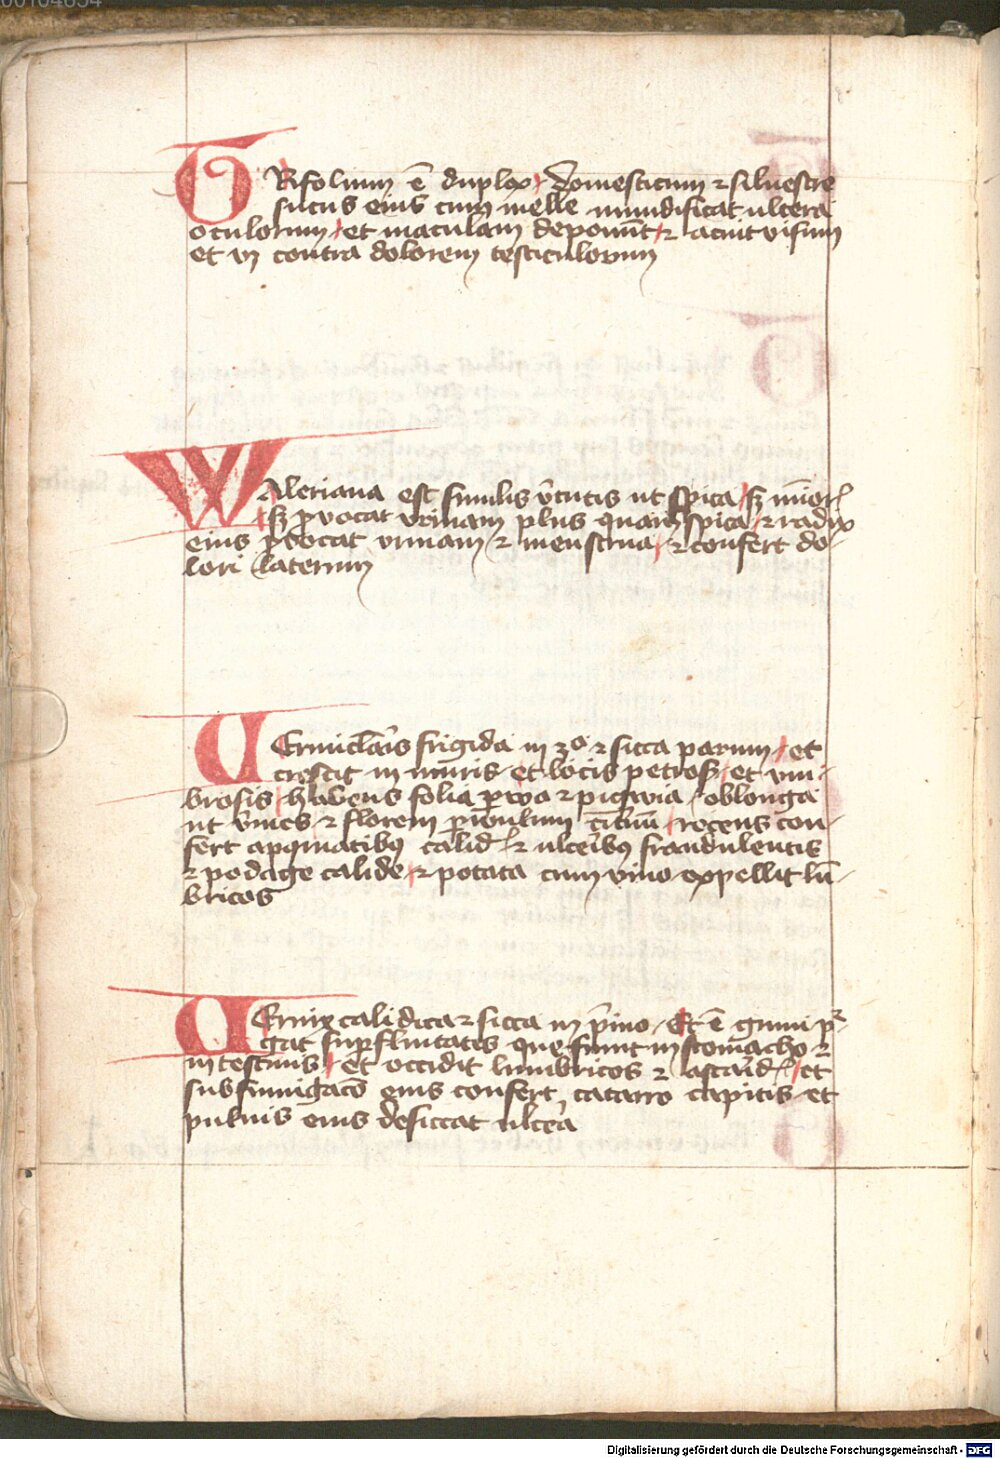 TRifolium ē duplex domesticum ⁊ silvestre
sucus eius cum melle mundificat ulcera
oculorum et maculam deponūt ⁊ acuit visum
et v̄ contra dolorem testiculorum
WAleriana est similis v̄tutis ut spica sꝫ mīor
sꝫ ꝓvocat urinam plus quam spica ⁊ radix
eius ꝓvocat urinam ⁊ menstrua ⁊ confert do-
lori laterum
VErmiclaris frigida in 3º ⁊ sicca parum et
crescit in muris et locis petrosꝫ et um-
brosis habens folia ꝑva ⁊ pigwia oblonga
ut v̄mes ⁊ florem ꝑvulum recens con-
fert apꝯmatibꝯ calid ⁊ ulceribꝯ fraudulentis
⁊ podagre calide ⁊ potata cum vino expellit lū-
bricos
VErnix calidica ⁊ sicca in p̄mo Et ē gumi pur-
gat suꝑfluitates que sunt in stomacho ⁊
intestinis et occidit lumbricos ⁊ ascarid et
subfumigacō eius confert catarro capitis et
pulvis eius desiccat ulcera
Digitalisierung gefördert durch die Deutsche Forschungsgemeinschaft - DFG